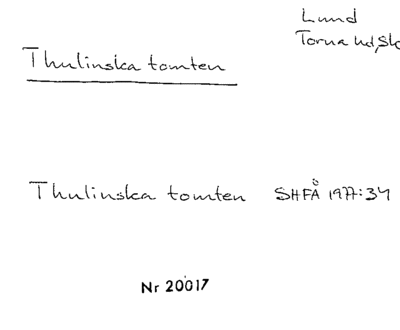 Lund
Torna hd, Sk
Thulinska tomten
Thulinska tomten SHFÅ 1977:34
Nr 20017